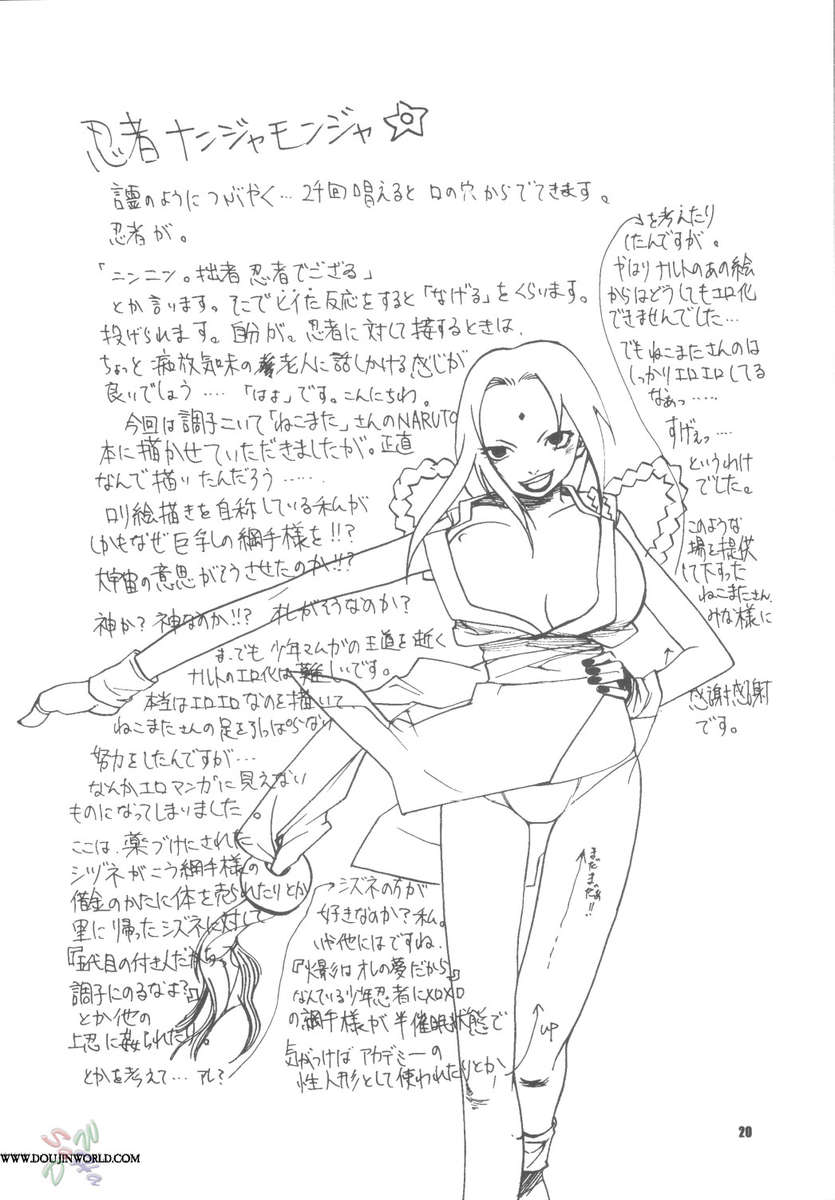 忍者ナンジャモンジャ☆
言霊のようにつぶやく…24回唱えると口の穴からでてきます。
忍者が。
「ニンニン。拙者忍者でござる」
とか言います。そこでどイた反応をすると「なげる」をくらいます。
投げられます。自分が。忍者に対して接するときは、
ちょっと痴放気味の老人に話しかける感じが
良いでしょう……「はょ」です。こんにちわ。
今回は調子こいて「ねこまた」さんのNARUTO
本に描かせていただきましたが。正直
なんで描いたんだろう……
ロリ絵描きを自称している私が
しかもなぜ巨乳の綱手様を!!?
大宇宙の意思がそうさせたのか!!?
神か?神なのか!!?オレがそうなのか?
ま、でも少年マンガの王道を逝く
ナルトのエロ化は難しいです。
本当はエロエロなのを描いて
ねこまたさんの足を引っぱらない
努力をしたんですが…
なんかエロマンガに見えない
ものになってしまいました。
ここは、薬づけにされた
シヅネがこう綱手様の
借金のかたに体を売られたりとか
里に帰ったシズネに対して
『五代目の付き人だからって
調子にのるなよ?』
とか他の
上忍に姦られたり。
とかを考えて…アレ?
シズネの方が
好きなのか?私。
いや他にはですね、
を考えたり
したんですが。
やはりナルトのあの絵
からはどうしてもエロ化
できませんでした…
でもねこまたさんのは
しっかりエロエロしてる
なぁっ……
すげぇっ…
というわけ
でした。
このような
場を提供
して下すった
ねこまたさん、
みな様に
感謝感謝
です。
まだまだぁ!!
UP
20
WWW.DOUJINWORLD.COM